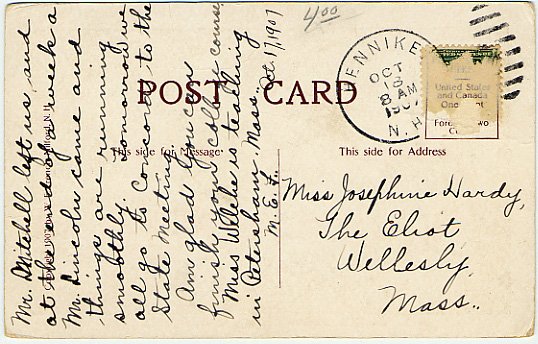 4.00
POST CARD
This side for Message
Mr. Mitchell left us, and
at the end of week a
Mr. Lincoln came and
things are running
smoothly. Tomorrow we
all go to Concord to the
State Meeting.
Am glad you can
finish your college course
Miss Willche is teaching
in Petersham, Mass..
M. E. F. Oct. 17, 1907
HENNIKE
OCT
18
8 AM
1907
N.H
United States
and Canada
One
For
This side for Address
Miss Josephine Hardy,
The Eliot
Wellesly
Mass..